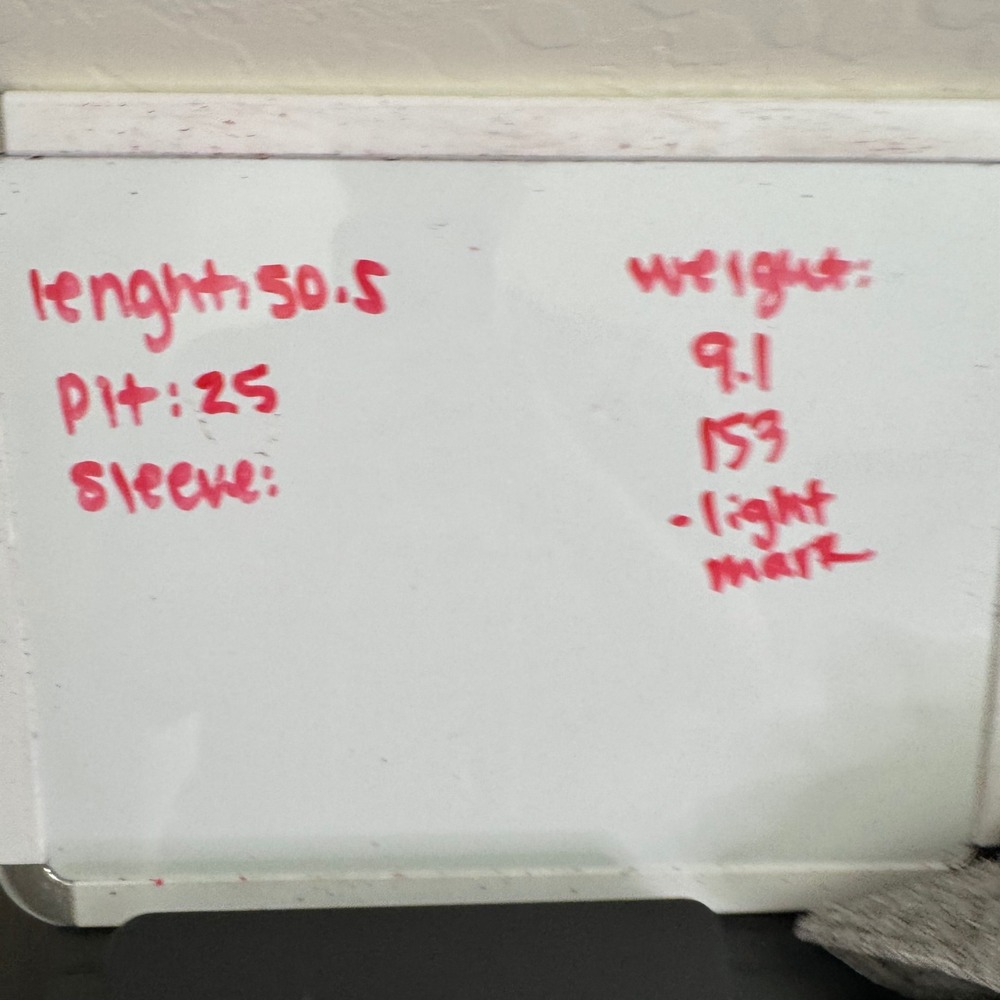 lenght: 50.5
Pit: 25
Sleeve:
weight:
9.1
153
- light
mark